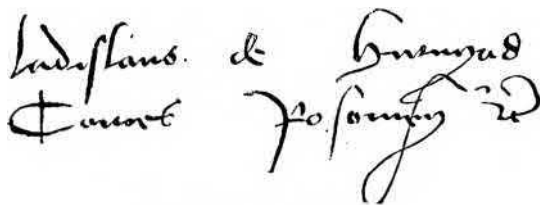 Ladislaus de Hunyad
Comes Posoniens